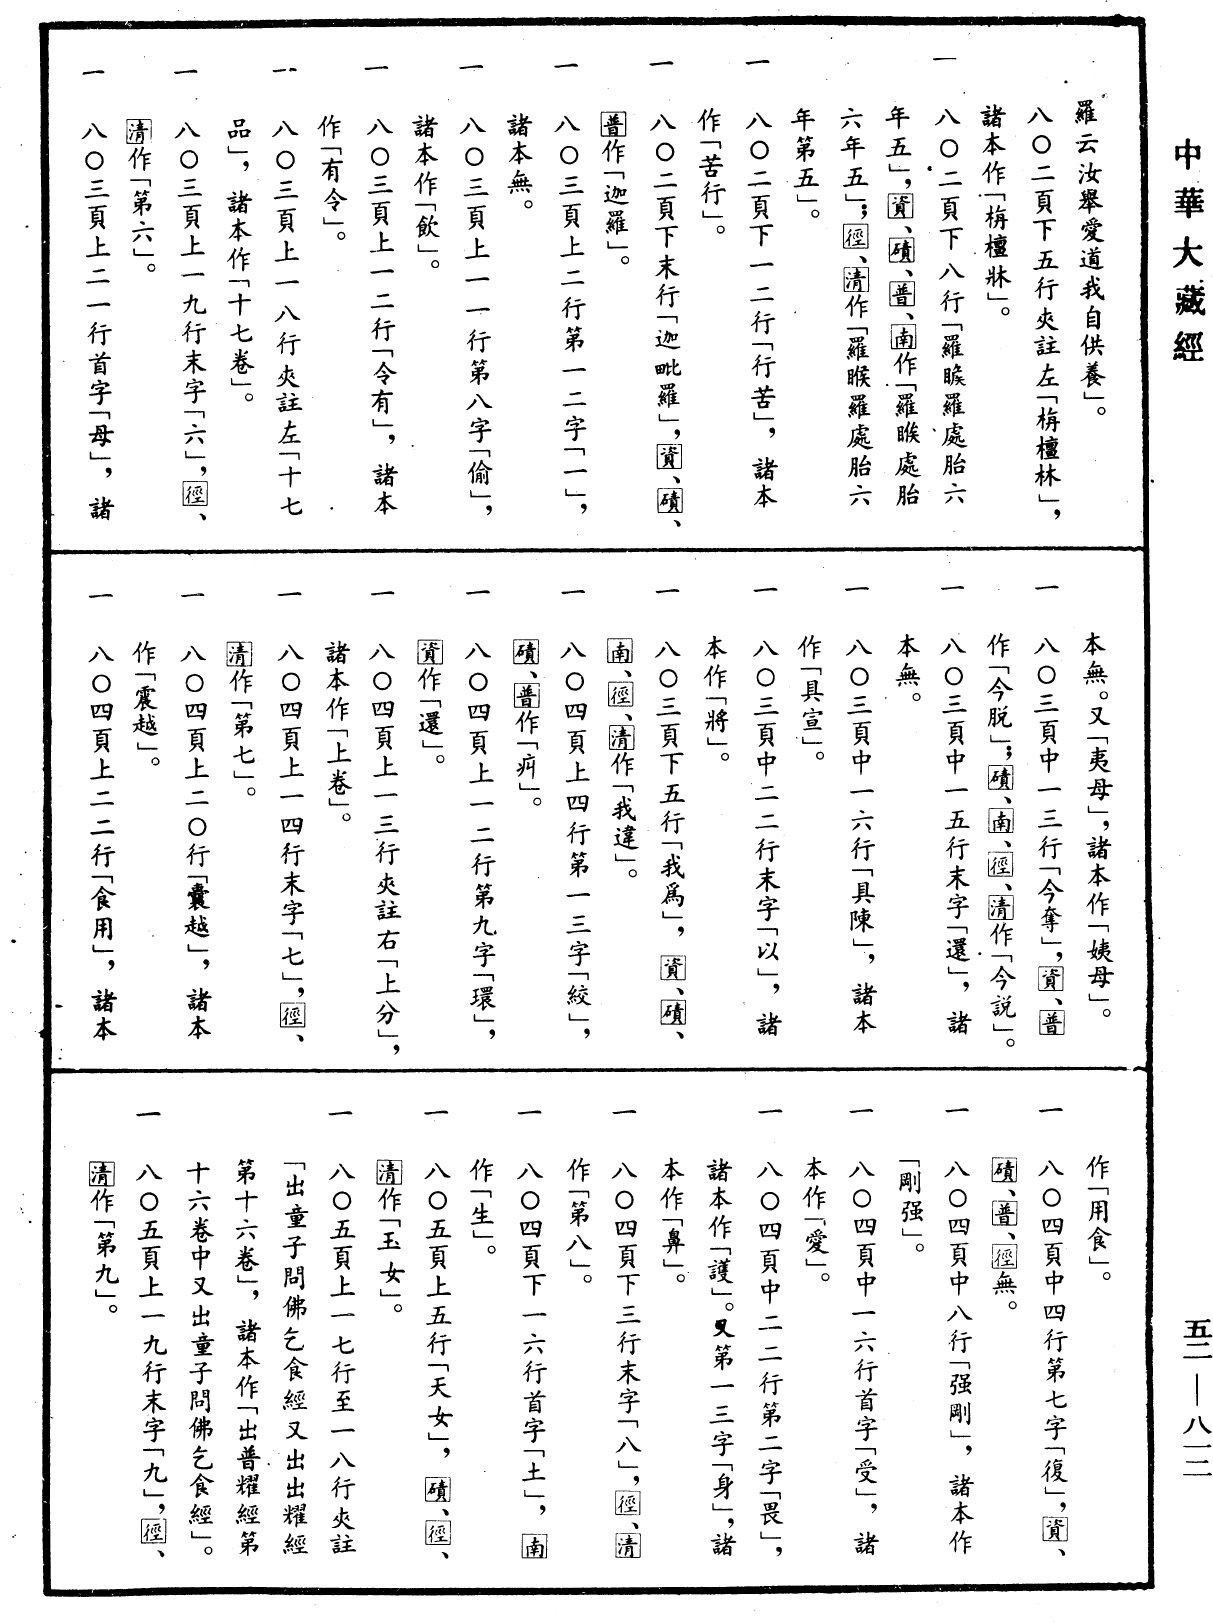 中華大藏經
羅云汝舉愛道我自供養」。
一 八〇二頁下五行夾註左「栴檀林」，
諸本作「栴檀牀」。
一 八〇二頁下八行「羅睺羅處胎六
年五」，資、磧、普、南作「羅睺處胎
六年五」；徑、清作「羅睺羅處胎六
年第五」。
一 八〇二頁下一二行「行苦」，諸本
作「苦行」。
一 八〇二頁下末行「迦毗羅」，資、磧、
普作「迦羅」。
一 八〇三頁上二行第一二字「一」，
諸本無。
一 八〇三頁上一一行第八字「偷」，
諸本作「飲」。
一 八〇三頁上一二行「令有」，諸本
作「有令」。
一 八〇三頁上一八行夾註左「十七
品」，諸本作「十七卷」。
一 八〇三頁上一九行末字「六」，徑、
清作「第六」。
一 八〇三頁上二一行首字「母」，諸
本無。又「夷母」，諸本作「姨母」。
一 八〇三頁中一三行「今奪」，資、普
作「今脱」；磧、南、徑、清作「今説」。
一 八〇三頁中一五行末字「還」，諸
本無。
一 八〇三頁中一六行「具陳」，諸本
作「具宣」。
一 八〇三頁中二二行末字「以」，諸
本作「將」。
一 八〇三頁下五行「我爲」，資、磧、
南、徑、清作「我違」。
一 八〇四頁上四行第一三字「絞」，
磧、普作「疛」。
一 八〇四頁上一二行第九字「環」，
資作「還」。
一 八〇四頁上一三行夾註右「上分」，
諸本作「上卷」。
一 八〇四頁上一四行末字「七」，徑、
清作「第七」。
一 八〇四頁上二〇行「囊越」，諸本
作「震越」。
一 八〇四頁上二二行「食用」，諸本
作「用食」。
一 八〇四頁中四行第七字「復」，資、
磧、普、徑無。
一 八〇四頁中八行「强剛」，諸本作
「剛强」。
一 八〇四頁中一六行首字「受」，諸
本作「愛」。
一 八〇四頁中二二行第二字「畏」，
諸本作「護」。又第一三字「身」，諸
本作「鼻」。
一 八〇四頁下三行末字「八」，徑、清
作「第八」。
一 八〇四頁下一六行首字「土」，南
作「生」。
一 八〇五頁上五行「天女」，磧、徑、
清作「玉女」。
一 八〇五頁上一七行至一八行夾註
「出童子問佛乞食經又出出耀經
第十六卷」，諸本作「出普耀經第
十六卷中又出童子問佛乞食經」。
一 八〇五頁上一九行末字「九」，徑、
清作「第九」。
五二—八一二